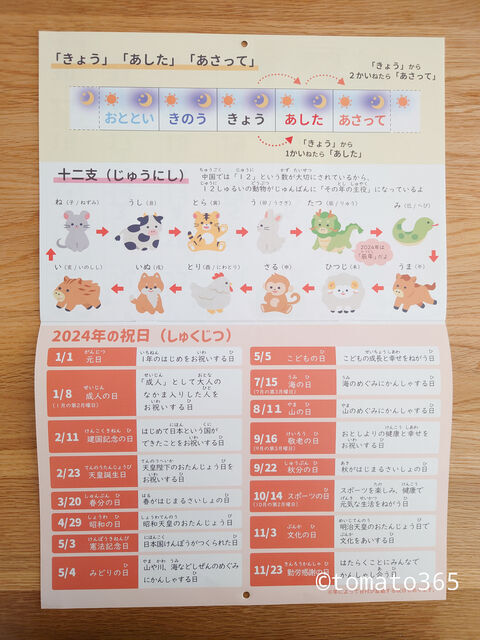 「きょう」「あした」「あさって」
「きょう」から
2かいねたら「あさって」
おととい きのう きょう あした あさって
「きょう」から
1かいねたら「あした」
十二支（じゅうにし）
ちゅうごく じゅうに かず たいせつ
中国では「12」という数が大切にされているから、
じゅうに どうぶつ とし しゅやく
12しゅるいの動物がじゅんばんに「その年の主役」になっているよ
ね（子/ねずみ） うし（丑） とら（寅） う（卯/うさぎ） たつ（辰/りゅう） み（巳/へび）
2024年は
「辰年」だよ
い（亥/いのしし） いぬ（戌） とり（酉/にわとり） さる（申） ひつじ（未） うま（午）
2024年の祝日（しゅくじつ）
1/1 元日 がんじつ
1年のはじめをお祝いする日
1/8 成人の日 せいじん
（1月の第2月曜日）
「成人」として大人の
なかま入りした人を
お祝いする日
2/11 建国記念の日 けんこくきねん
はじめて日本という国が
できたことをお祝いする日
2/23 天皇誕生日 てんのうたんじょうび
天皇陛下のおたんじょう日を
お祝いする日
3/20 春分の日 しゅんぶん
春がはじまるさいしょの日
4/29 昭和の日 しょうわ
昭和天皇のおたんじょう日
5/3 憲法記念日 けんぽうきねんび
日本国けんぽうがつくられた日
5/4 みどりの日
山や川、海などしぜんのめぐみ
にかんしゃする日
5/5 こどもの日
こどもの成長と幸せをねがう日
7/15 海の日 うみ
（7月の第3月曜日）
海のめぐみにかんしゃする日
8/11 山の日 やま
山のめぐみにかんしゃする日
9/16 敬老の日 けいろう
（9月の第3月曜日）
おとしよりの健康と幸せを
お祝いする日
9/22 秋分の日 しゅうぶん
秋がはじまるさいしょの日
10/14 スポーツの日
（10月の第2月曜日）
スポーツを楽しみ、健康で
元気な生活をねがう日
11/3 文化の日 ぶんか
明治天皇のおたんじょう日で
文化をあいする日
11/23 勤労感謝の日 きんろうかんしゃ
はたらくことにみんなで
かんしゃし合う日
©tomato365